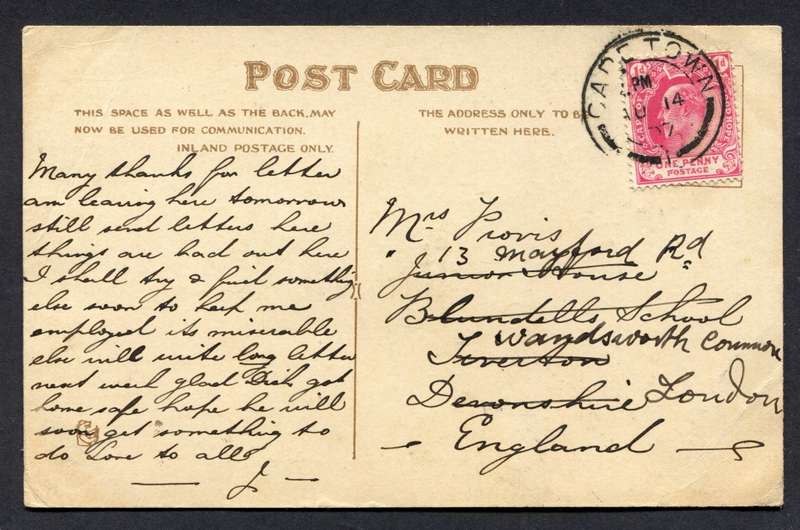 POST CARD
THIS SPACE AS WELL AS THE BACK, MAY
NOW BE USED FOR COMMUNICATION.
INLAND POSTAGE ONLY.
THE ADDRESS ONLY TO BE
WRITTEN HERE.
CAPE TOWN
PM
AU 14
07
ONE PENNY
POSTAGE
Many thanks for letter
am leaving here tomorrow
still send letters here
things are bad out here
I shall try & find something
else soon to keep me
employed its miserable
else will write long letter
next week glad Dick got
home safe hope he will
soon get something to
do Love to all
J
Mrs Provis
" 13 Mayford Rd
Junior House
Blundells School
Wandsworth Common
Tiverton
Devonshire London
England